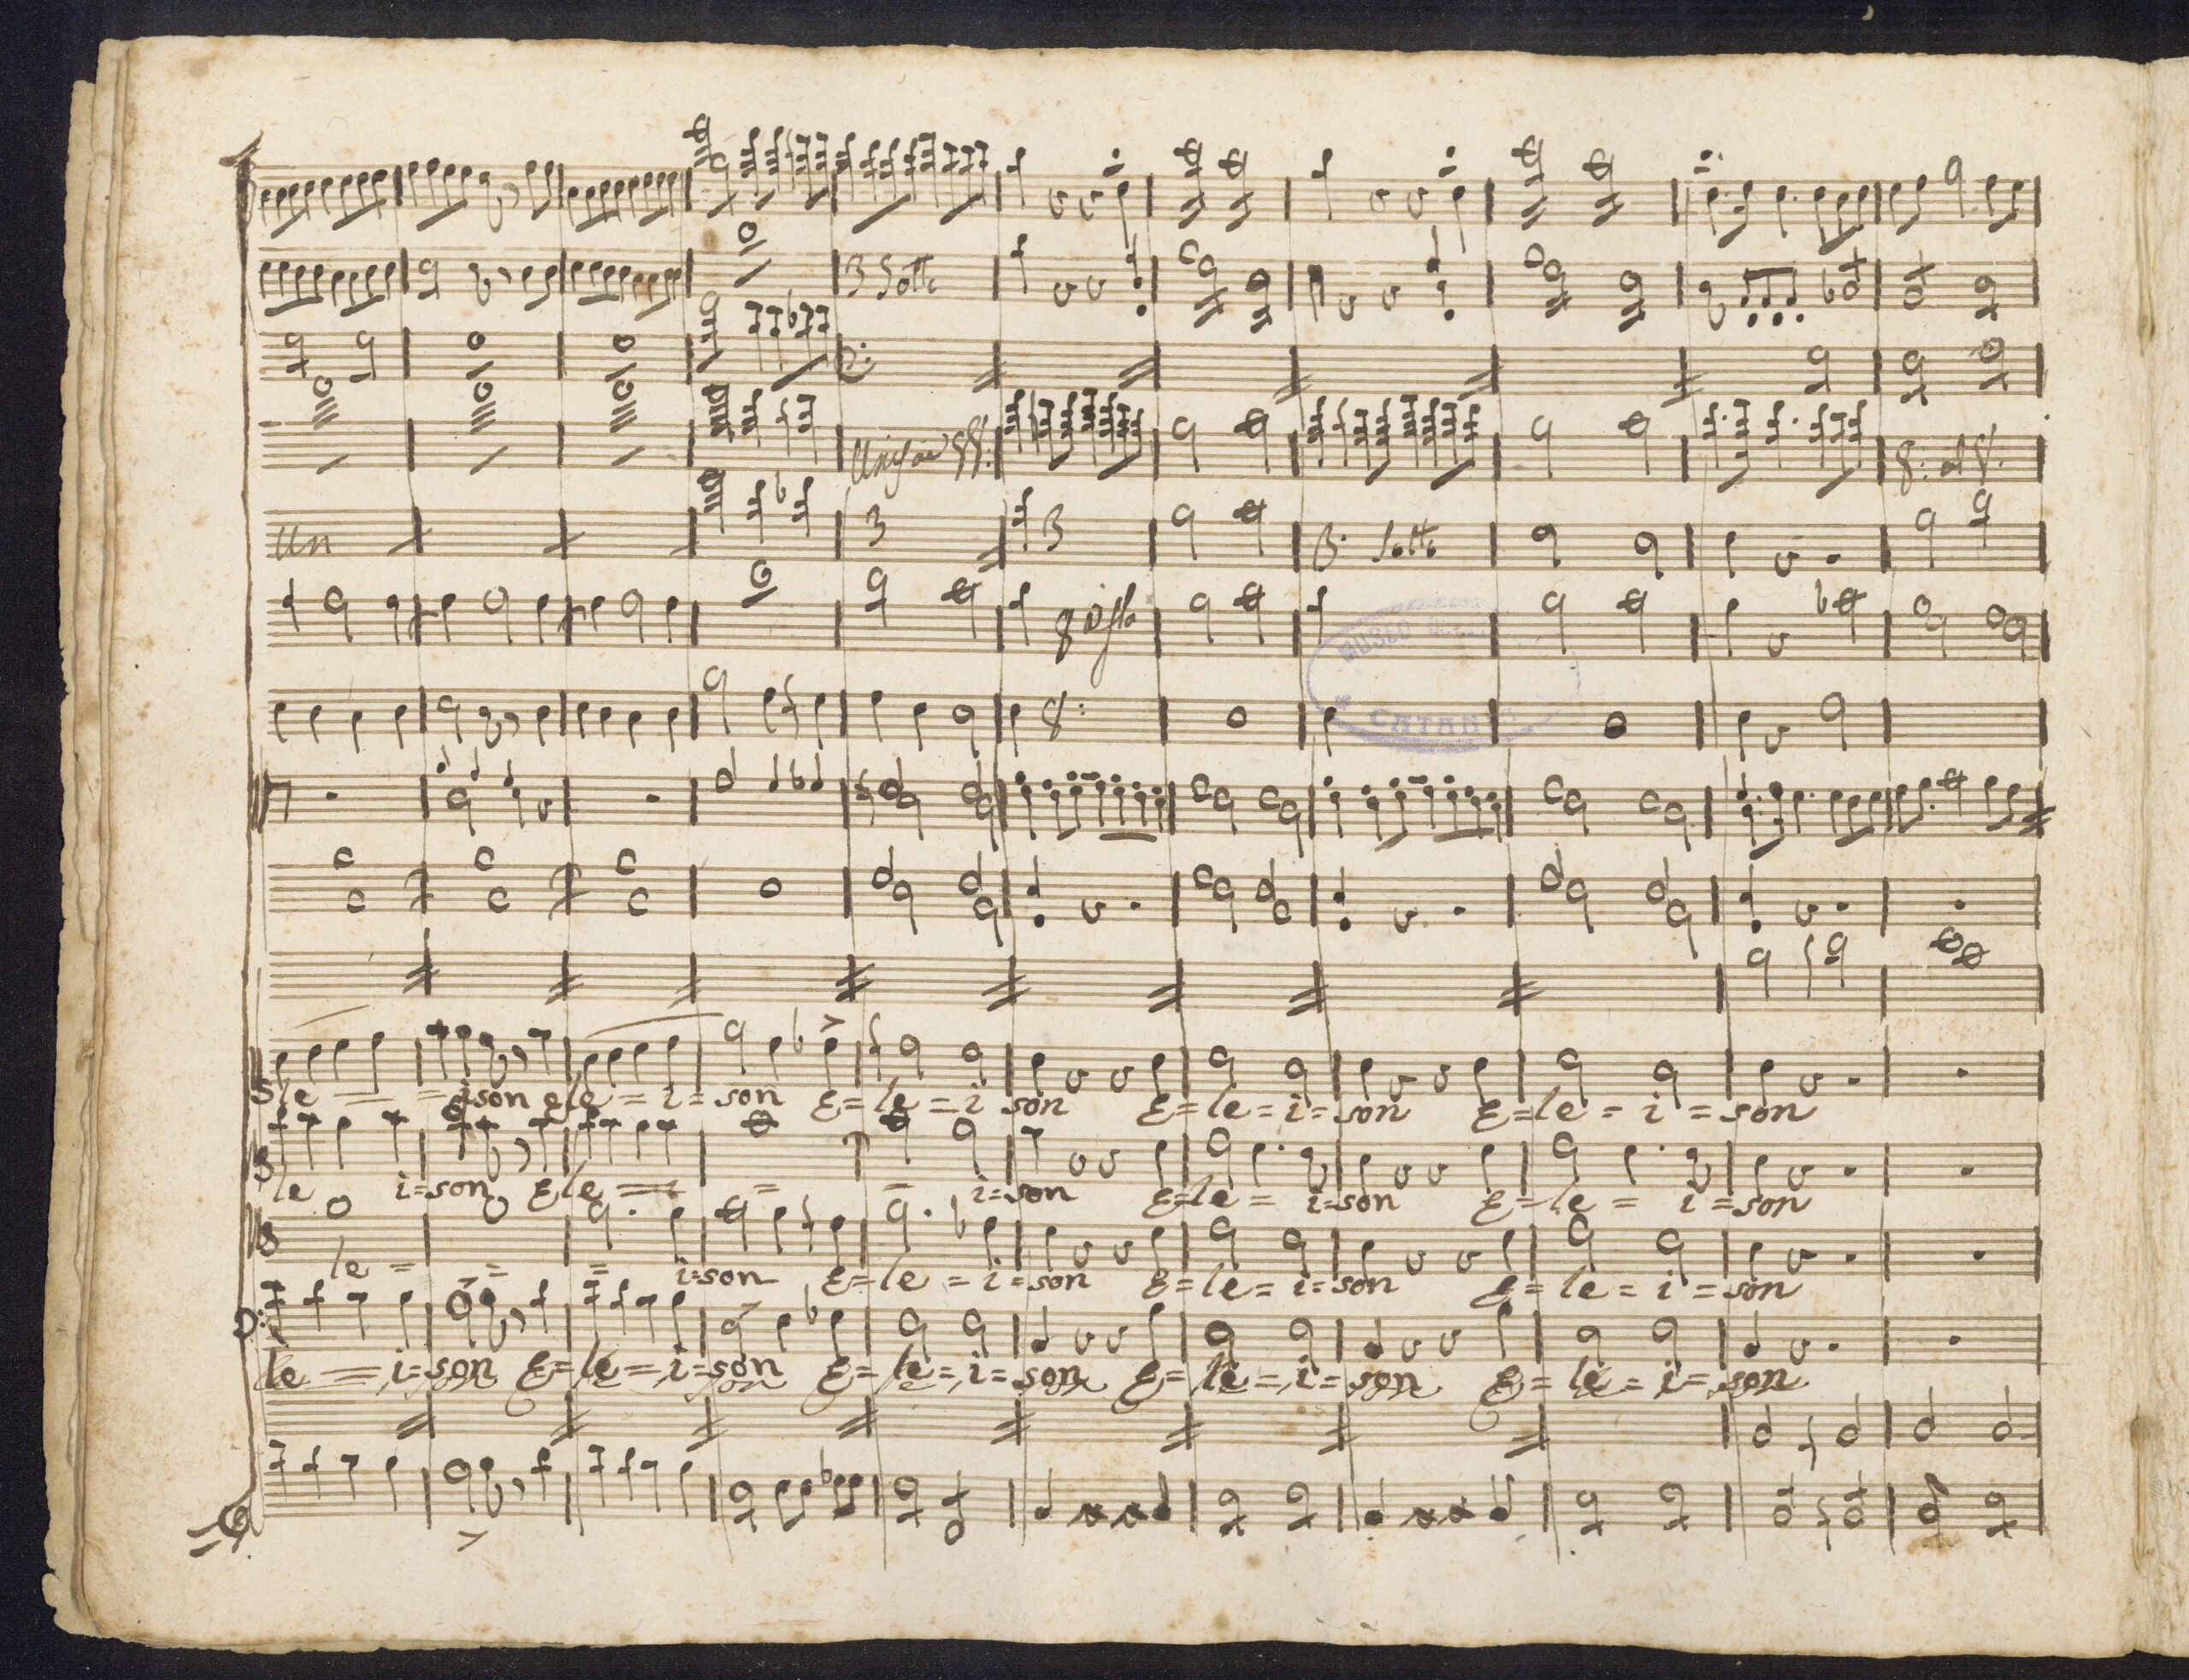 3 Sotto
Unison
Un
3
3
3. Sotto
MUSEO
CATANIA
le = = ison ele = i = son E = le = i son E = le = i = son E = le = i = son
le i = son Ele = i = = i = son E = le = i = son E = le = i = son
le = = = i = son E = le = i = son E = le = i = son E = le = i = son
le = i = son E = le = i = son E = le = i = son E = le = i = son E = le = i = son